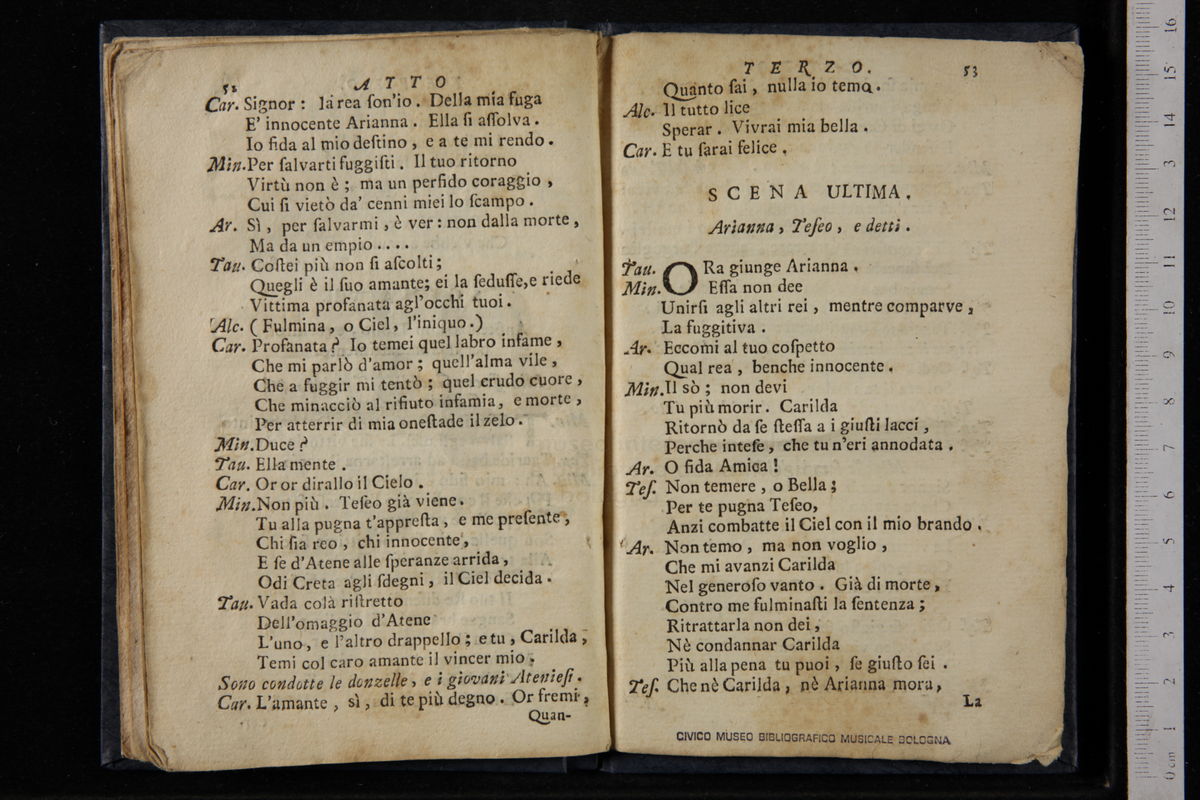 52 ATTO
Car. Signor : la rea ſon'io . Della mia fuga
E' innocente Arianna . Ella ſi aſſolva .
Io fida al mio deſtino , e a te mi rendo .
Min. Per ſalvarti fuggiſti . Il tuo ritorno
Virtù non è ; ma un perfido coraggio ,
Cui ſi vietò da' cenni miei lo ſcampo .
Ar. Sì , per ſalvarmi , è ver : non dalla morte ,
Ma da un empio . . . .
Tau. Coſtei più non ſi aſcolti ;
Quegli è il ſuo amante; ei la ſeduſſe, e riede
Vittima profanata agl'occhi tuoi .
Alc. ( Fulmina , o Ciel , l'iniquo . )
Car. Profanata ? Io temei quel labro infame ,
Che mi parlò d'amor ; quell'alma vile ,
Che a fuggir mi tentò ; quel crudo cuore ,
Che minacciò al rifiuto infamia , e morte ,
Per atterrir di mia oneſtade il zelo .
Min. Duce ?
Tau. Ella mente .
Car. Or or dirallo il Cielo .
Min. Non più . Teſeo già viene .
Tu alla pugna t'appreſta , e me preſente ,
Chi ſia reo , chi innocente ,
E ſe d'Atene alle ſperanze arrida ,
Odi Creta agli ſdegni , il Ciel decida .
Tau. Vada colà riſtretto
Dell'omaggio d'Atene
L'uno , e l'altro drappello ; e tu , Carilda ,
Temi col caro amante il vincer mio .
Sono condotte le donzelle , e i giovani Atenieſi .
Car. L'amante , sì , di te più degno . Or fremi ,
Quan-
TERZO. 53
Quanto ſai , nulla io temo .
Alc. Il tutto lice
Sperar . Vivrai mia bella .
Car. E tu ſarai felice .
SCENA ULTIMA .
Arianna , Teſeo , e detti .
Tau. ORa giunge Arianna .
Min. Eſſa non dee
Unirſi agli altri rei , mentre comparve ,
La fuggitiva .
Ar. Eccomi al tuo coſpetto
Qual rea , benche innocente .
Min. Il sò ; non devi
Tu più morir . Carilda
Ritornò da ſe ſteſſa a i giuſti lacci ,
Perche inteſe , che tu n'eri annodata .
Ar. O fida Amica !
Teſ. Non temere , o Bella ;
Per te pugna Teſeo,
Anzi combatte il Ciel con il mio brando .
Ar. Non temo , ma non voglio ,
Che mi avanzi Carilda
Nel generoſo vanto . Già di morte ,
Contro me fulminaſti la ſentenza ;
Ritrattarla non dei ,
Nè condannar Carilda
Più alla pena tu puoi , ſe giuſto ſei .
Teſ. Che nè Carilda , nè Arianna mora ,
La
CIVICO MUSEO BIBLIOGRAFICO MUSICALE BOLOGNA
0 cm 1 2 3 4 5 6 7 8 9 10 11 12 3 14 15 16